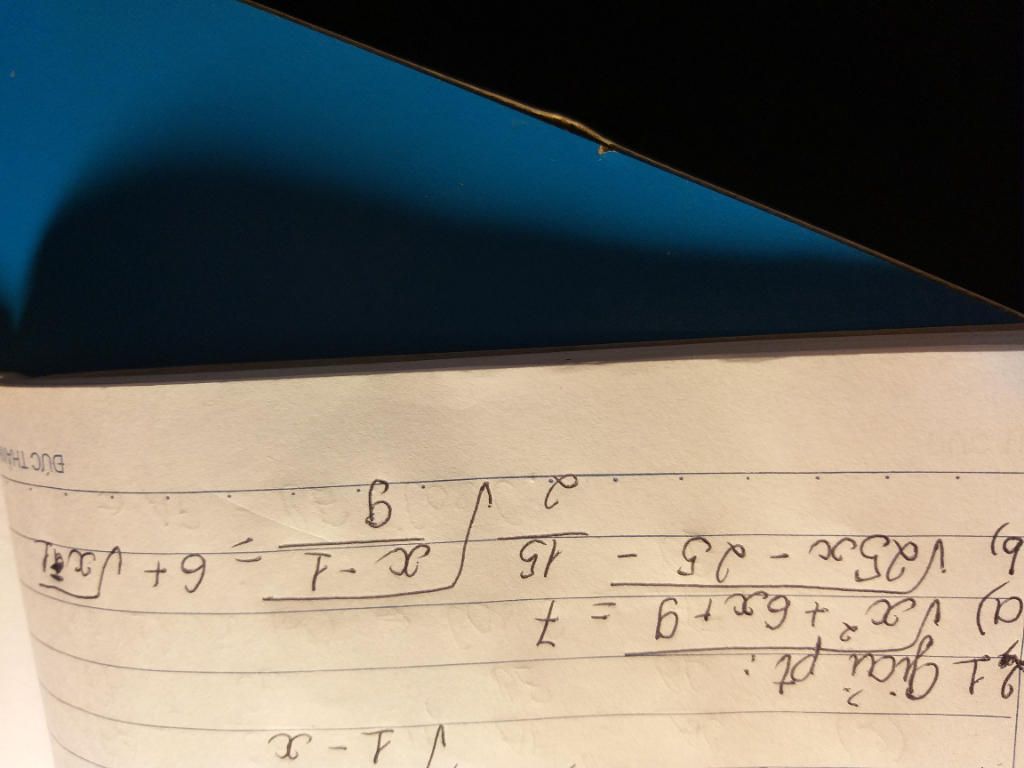 √1 - x
2, 1 giải pt:
a) √x² + 6x + 9 = 7
b) √25x - 25 - 15/2 √x - 1/9 = 6 + √x-1
ĐỨC THÀN